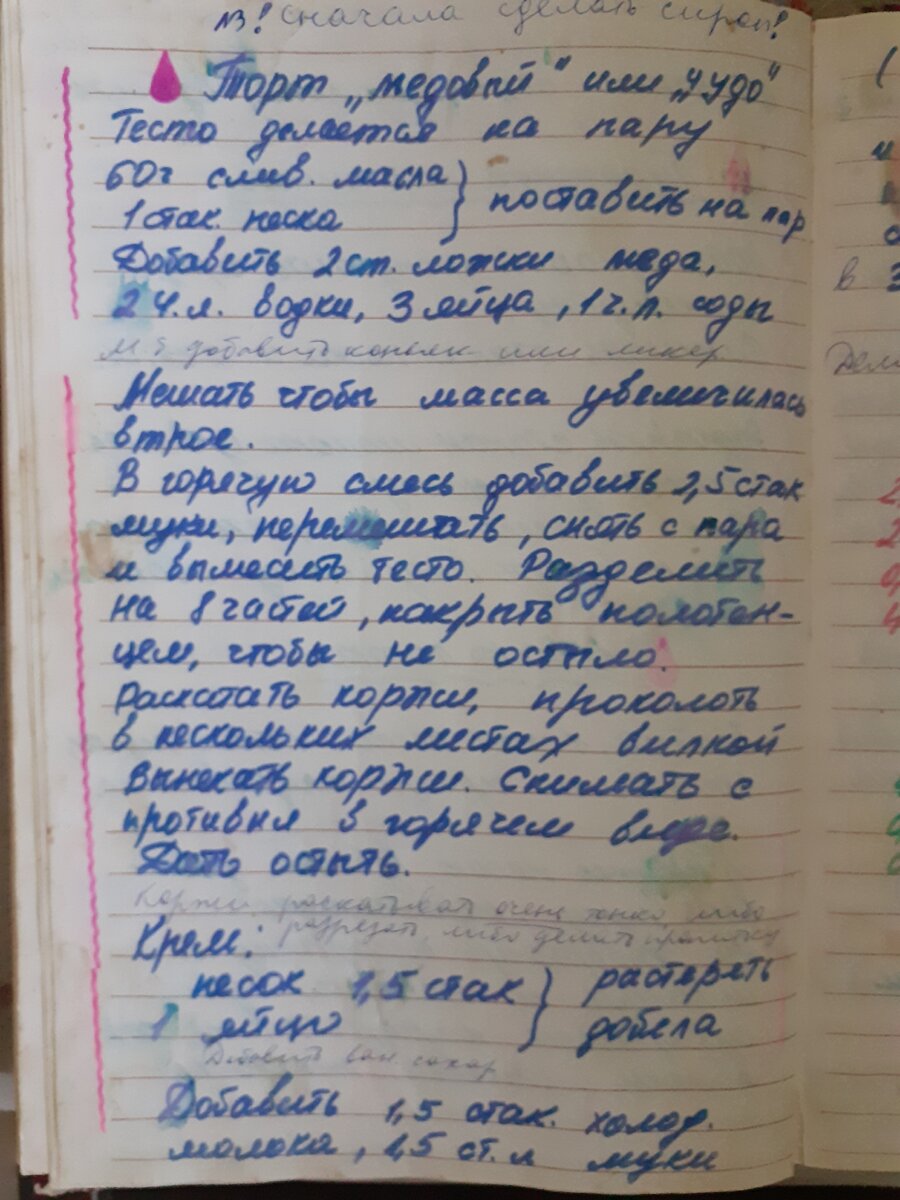 NB! сначала сделать сироп!
Торт „медовый" или „Чудо"
Тесто делается на пару
60г слив. масла
1 стак. песка } поставить на пар
Добавить 2 ст. ложки меда,
2 ч.л. водки, 3 яйца, 1 ч.л. соды
м.б добавить коньяк или ликер
Мешать чтобы масса увеличилась
втрое.
В горячую смесь добавить 2,5 стак
муки, перемешать, снять с пара
и вымесить тесто. Разделить
на 8 частей, накрыть полотен-
цем, чтобы не остыло.
Раскатать коржи, проколоть
в нескольких местах вилкой
Выпекать коржи. Снимать с
противня в горячем виде.
Дать остыть.
Коржи раскатывать очень тонко, либо
разрезать, либо делать пропитку
Крем:
песок 1,5 стак } растереть
1 яйцо } добела
Добавить ван сахар
Добавить 1,5 стак. холод.
молока, 1,5 ст.л муки
(
и
в 3